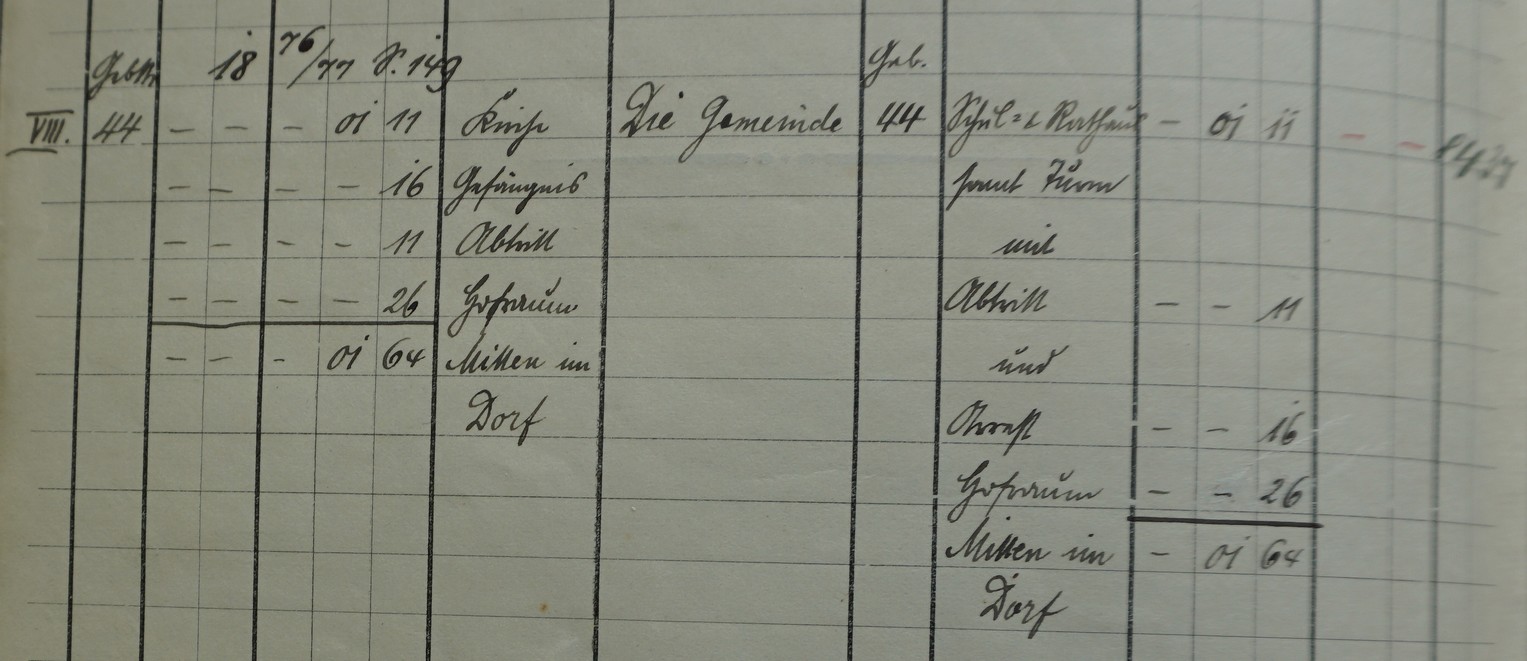 18 76/77 S. 149 Geb.
VIII. 44 – – – 01 11 Kirche Die Gemeinde 44 Schul= & Rathaus – 01 11 – –
– – – – 16 Gefängnis samt Turm
– – – – 11 Abtritt mit
– – – – 26 Hofraum Abtritt – – 11
– – – 01 64 Mitten im und
Dorf Arrest – – 16
Hofraum – – 26
Mitten im – 01 64
Dorf